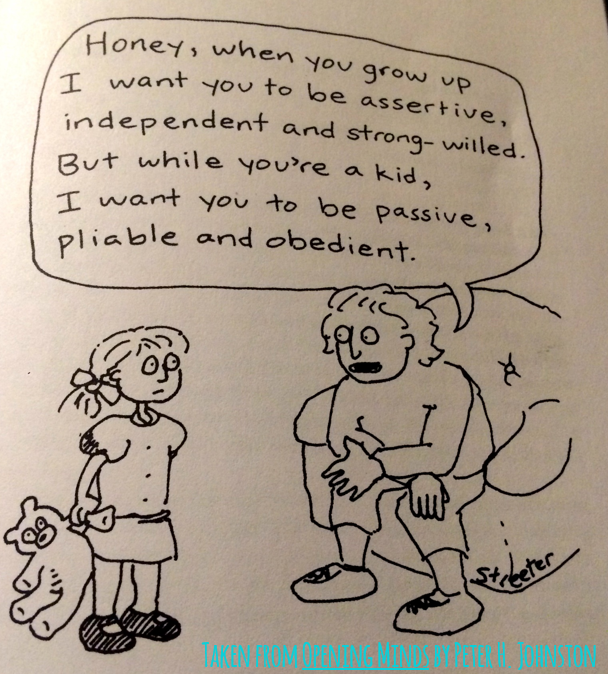 Honey, when you grow up
I want you to be assertive,
independent and strong-willed.
But while you're a kid,
I want you to be passive,
pliable and obedient.
Streeter
Taken from Opening Minds by Peter H. Johnston